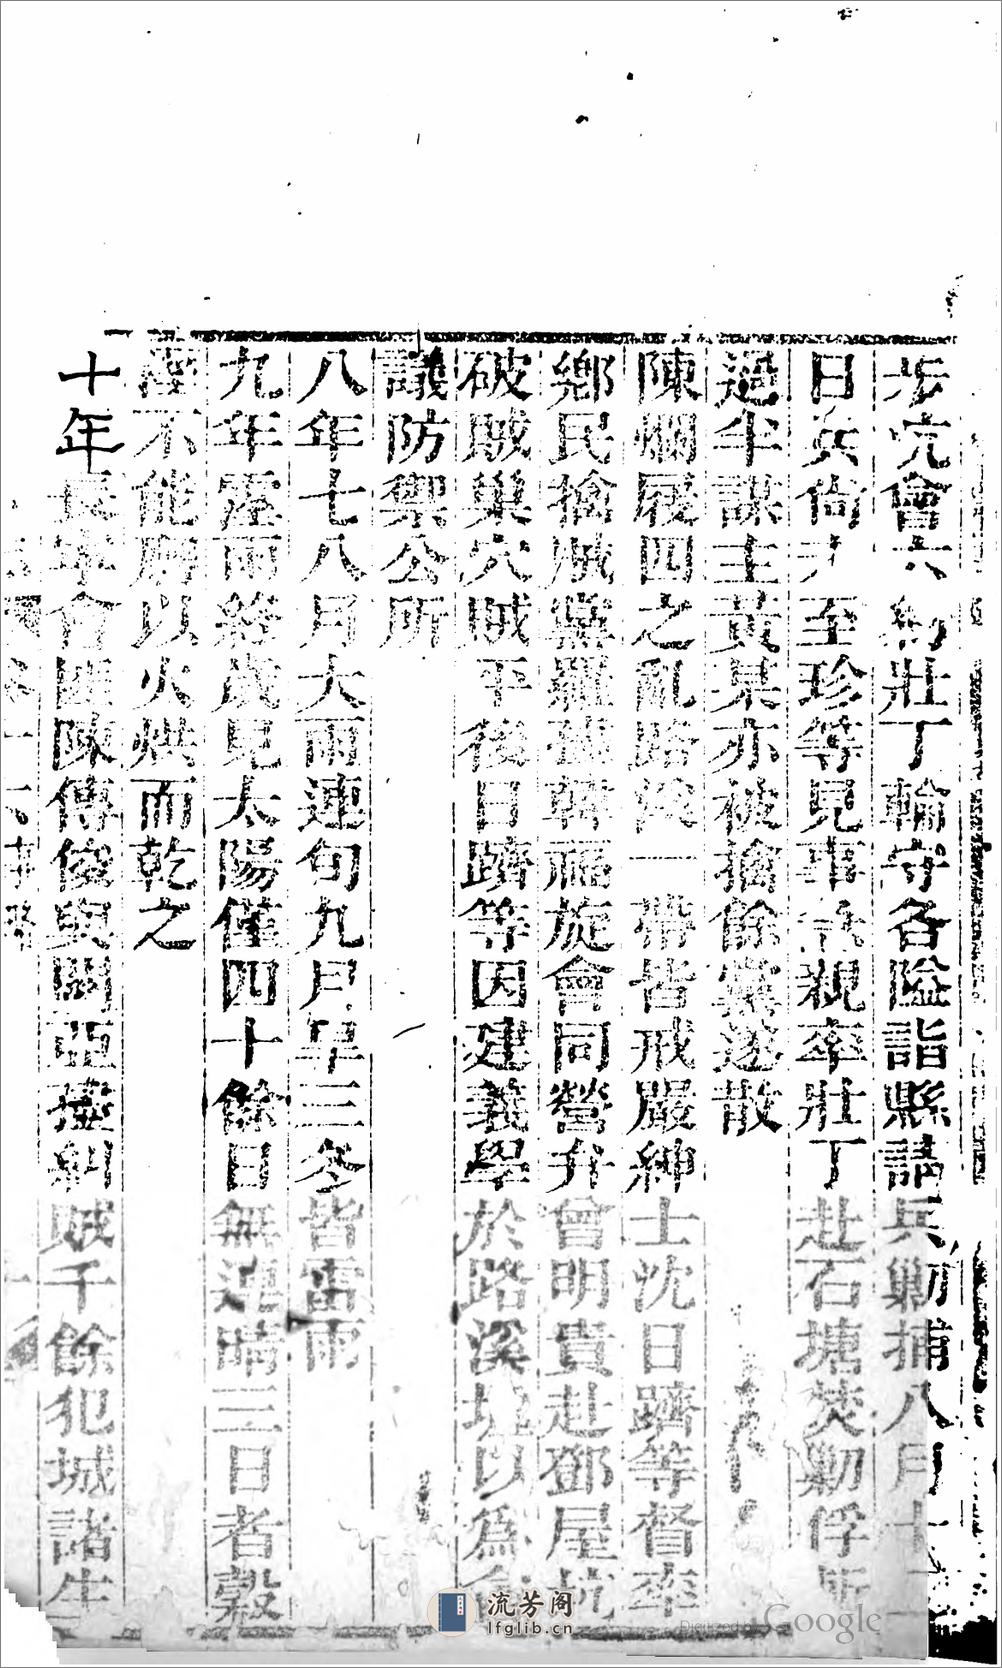 步坑會 約壯丁輪守各隘詣縣請兵剿捕八月十
日兵尚 至珍等見事 親率壯丁赴石塘焚勦俘斬
過半謀主黃某亦被擒餘黨遂散
陳爛屐四之亂路溪一帶皆戒嚴紳士沈日躋等督率
鄉民擒賊黨羅 韓福旋會同營弁曾明貴赴鄧屋坑
破賊巢穴賊平後日躋等因建義學於路溪 以爲
議防禦公所
八年七八月大雨連旬九月旱三冬皆雷雨
九年霪雨終歲見太陽僅四十餘日無連晴三日者穀
溼不能 以火烘而乾之
十年長 會匪陳傳俊與劉亞 糾賊千餘犯城諸生
流芳阁
lfglib.cn
Digitized by Google